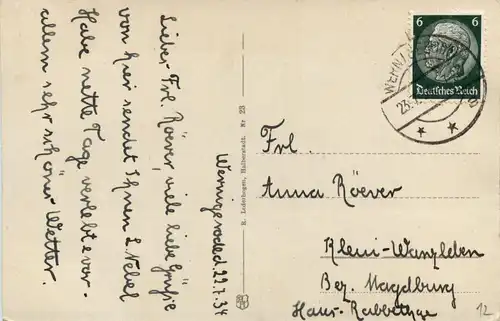 Wernigerode d. 23.7.34
Lieber Frl. Röever, viele liebe Grüße
von hier sendet Ihnen L. Nebel
Habe nette Tage verlebt vor-
allem sehr schönes Wetter.
R. Lederbogen, Halberstadt. Nr. 23
6 6
Deutsches Reich
Frl.
Anna Röever
Klein-Wanzleben
Bez. Magdburg
Haus-Rabbethge
12